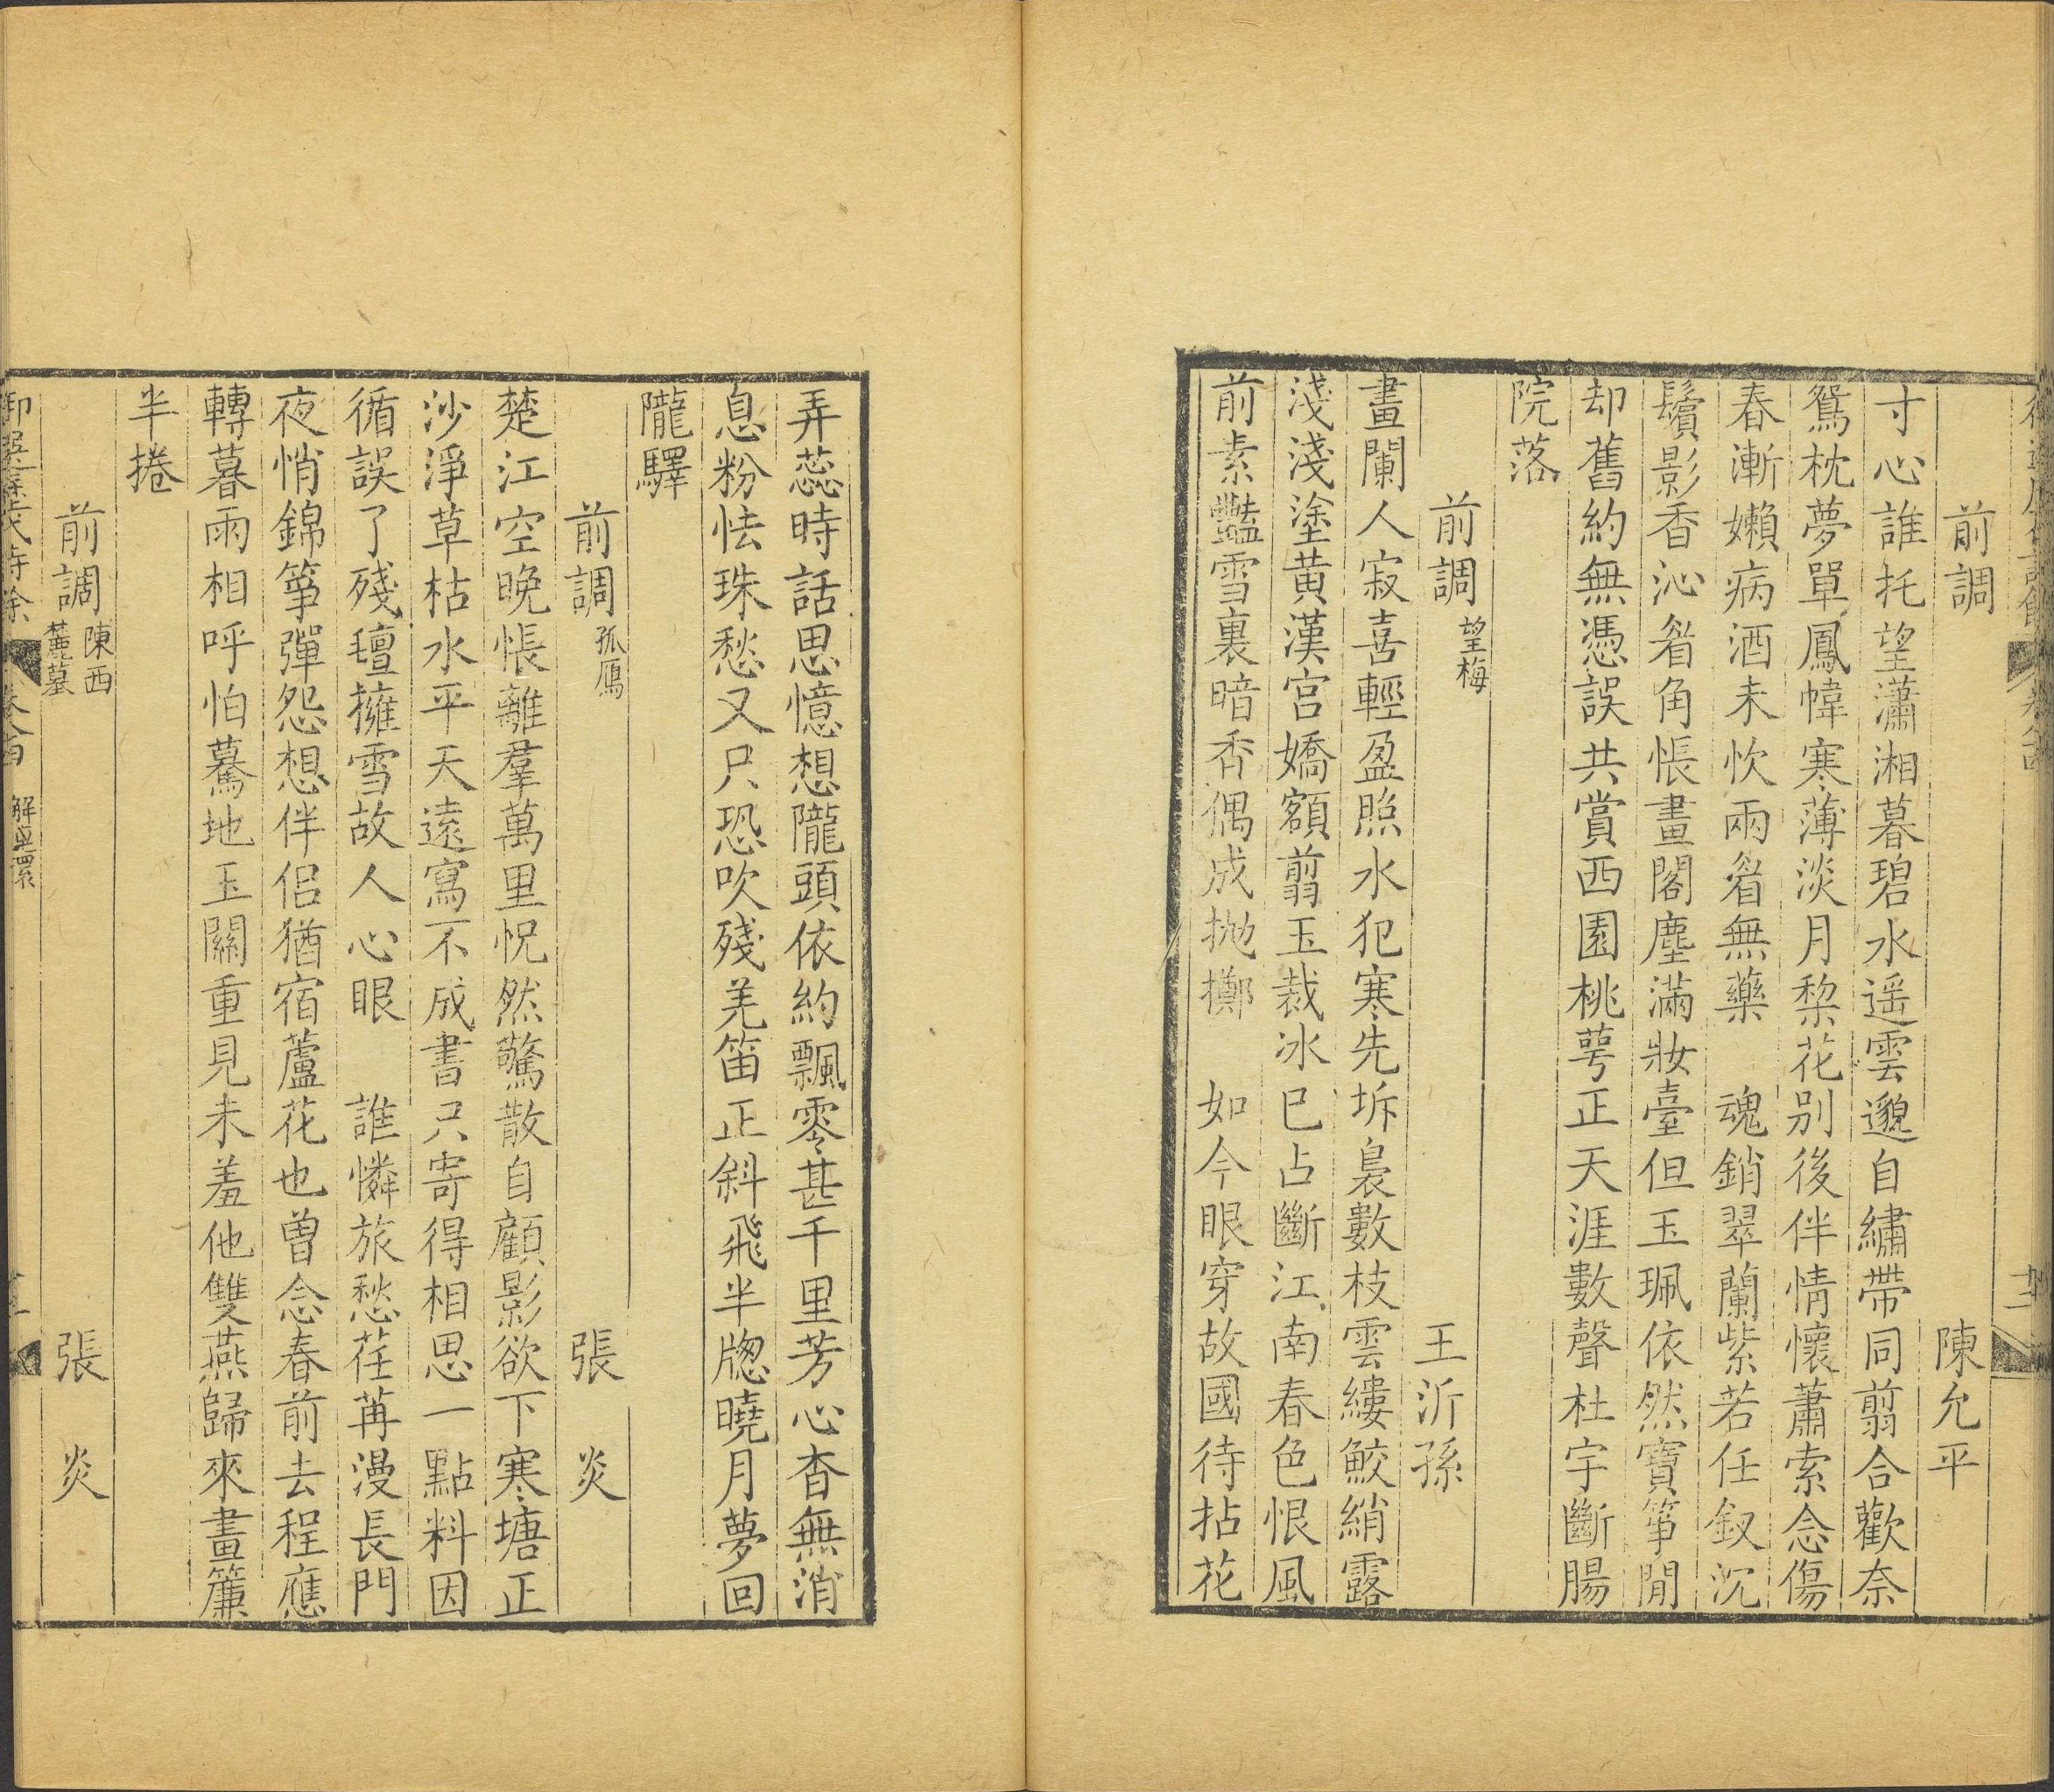 前調　陳允平
寸心誰托望瀟湘暮碧水遥雲邈自繡帶同翦合歡奈
鴛枕夢單鳳幃寒薄淡月棃花別後伴情懷蕭索念傷
春漸嬾病酒未忺兩眉無藥　魂銷翠蘭紫若任釵沉
鬢影香沁眉角悵畫閣塵滿妝臺但玉珮依然寶筝閒
却舊約無憑誤共賞西園桃萼正天涯數聲杜宇斷腸
院落
前調望梅　王沂孫
畫闌人寂喜輕盈照水犯寒先坼裊數枝雲縷鮫綃露
淺淺塗黄漢宫嬌額翦玉裁冰已占斷江南春色恨風
前素豔雪裏暗香偶成抛擲　如今眼穿故國待拈花
弄蕊時話思憶想隴頭依約飄零甚千里芳心杳無消
息粉怯珠愁又只恐吹殘羌笛正斜飛半牕曉月夢回
隴驛
前調孤鴈　張炎
楚江空晚悵離羣萬里怳然驚散自顧影欲下寒塘正
沙淨草枯水平天遠寫不成書只寄得相思一點料因
循誤了殘氊擁雪故人心眼　誰憐旅愁荏苒漫長門
夜悄錦筝彈怨想伴侣猶宿蘆花也曾念春前去程應
轉暮雨相呼怕驀地玉關重見未羞他雙燕歸來畫簾
半捲
前調陳西麓墓　張炎
解連環